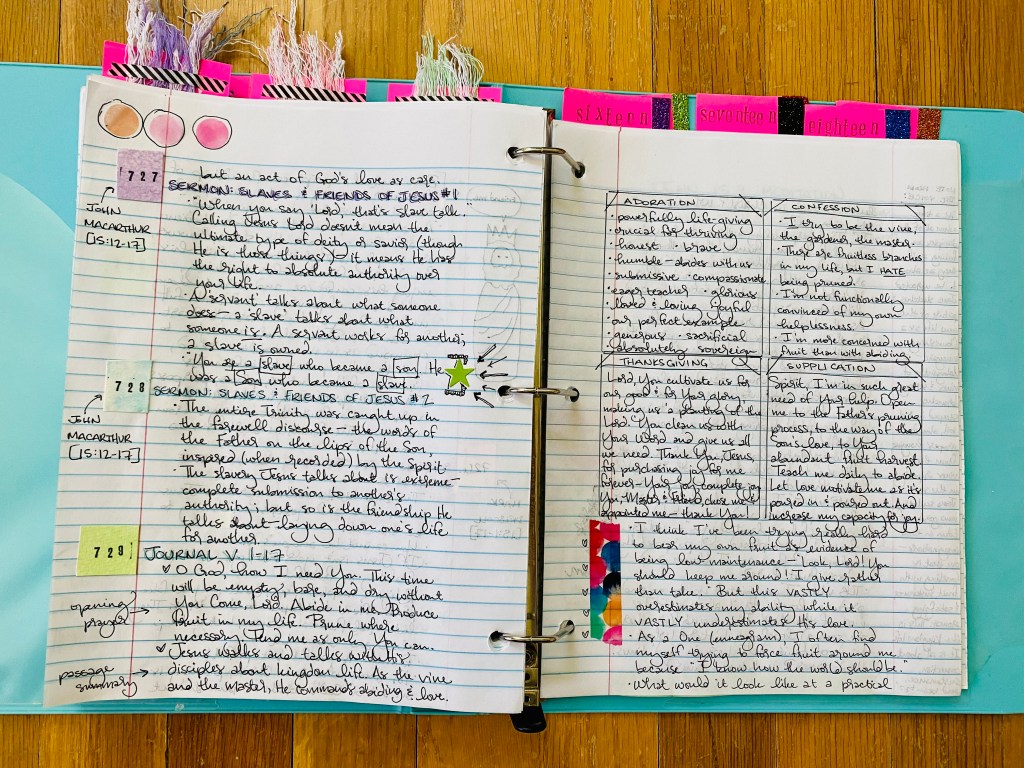 sixteen
seventeen
eighteen
but an act of God's love as care.
727
SERMON: SLAVES & FRIENDS OF JESUS #1
JOHN
MACARTHUR
[15:12-17]
• "When you say 'Lord,' that's slave talk."
Calling Jesus Lord doesn't mean the
ultimate type of deity or savior (though
He is those things) – it means He has
the right to absolute authority over
your life.
• A 'servant' talks about what someone
does – a 'slave' talks about what
someone is. A servant works for another;
a slave is owned.
• You are a slave who became a son. He
was a Son who became a slave.
728
SERMON: SLAVES & FRIENDS OF JESUS #2
JOHN
MACARTHUR
[15:12-17]
• The entire Trinity was caught up in
the farewell discourse – the words of
the Father on the lips of the Son,
inspired (when recorded) by the Spirit.
• The slavery Jesus talks about is extreme–
complete submission to another's
authority; but so is the friendship He
talks about – laying down one's life
for another.
729
JOURNAL V. 1-17
opening
prayer
O God, how I need You. This time
will be empty, bare, and dry without
You. Come, Lord. Abide in me. Produce
fruit in my life. Prune where
necessary. Tend me as only You can.
passage
summary
Jesus walks and talks with His
disciples about kingdom life. As the vine
and the master, He commands abiding & love.
ADORATION
• powerfully life-giving
• crucial for thriving
• honest • brave
• humble – abides with us
• submissive • compassionate
• eager teacher • glorious
• loved & loving • joyful
• our perfect example
• generous • sacrificial
• absolutely sovereign
CONFESSION
• I try to be the vine,
the gardener, the master.
• There are fruitless branches
in my life, but I HATE
being pruned.
• I'm not functionally
convinced of my own
helplessness.
• I'm more concerned with
fruit than with abiding.
THANKSGIVING
Lord, You cultivate us for
our good & for Your glory,
making us "a planting of the
Lord." You clean us with
Your Word and give us all
we need. Thank You, Jesus,
for purchasing joy for me
forever – Your joy, complete joy.
You – Master & Friend, chose me &
appointed me – thank You!
SUPPLICATION
Spirit, I'm in such great
need of Your help. Open
me to the Father's pruning
process, to the way of the
Son's love, to Your
abundant fruit harvest.
Teach me daily to abide.
Let love motivate me as it's
poured in & poured out. And
increase my capacity for joy.
• I think I've been trying really hard
to bear my own fruit as evidence of
being low-maintenance – "Look, Lord! You
should keep me around! I give rather
than take." But this VASTLY
overestimates my ability while it
VASTLY underestimates His love.
• As a One (enneagram), I often find
myself trying to force fruit around me
because "I know how the world should be."
• What would it look like at a practical